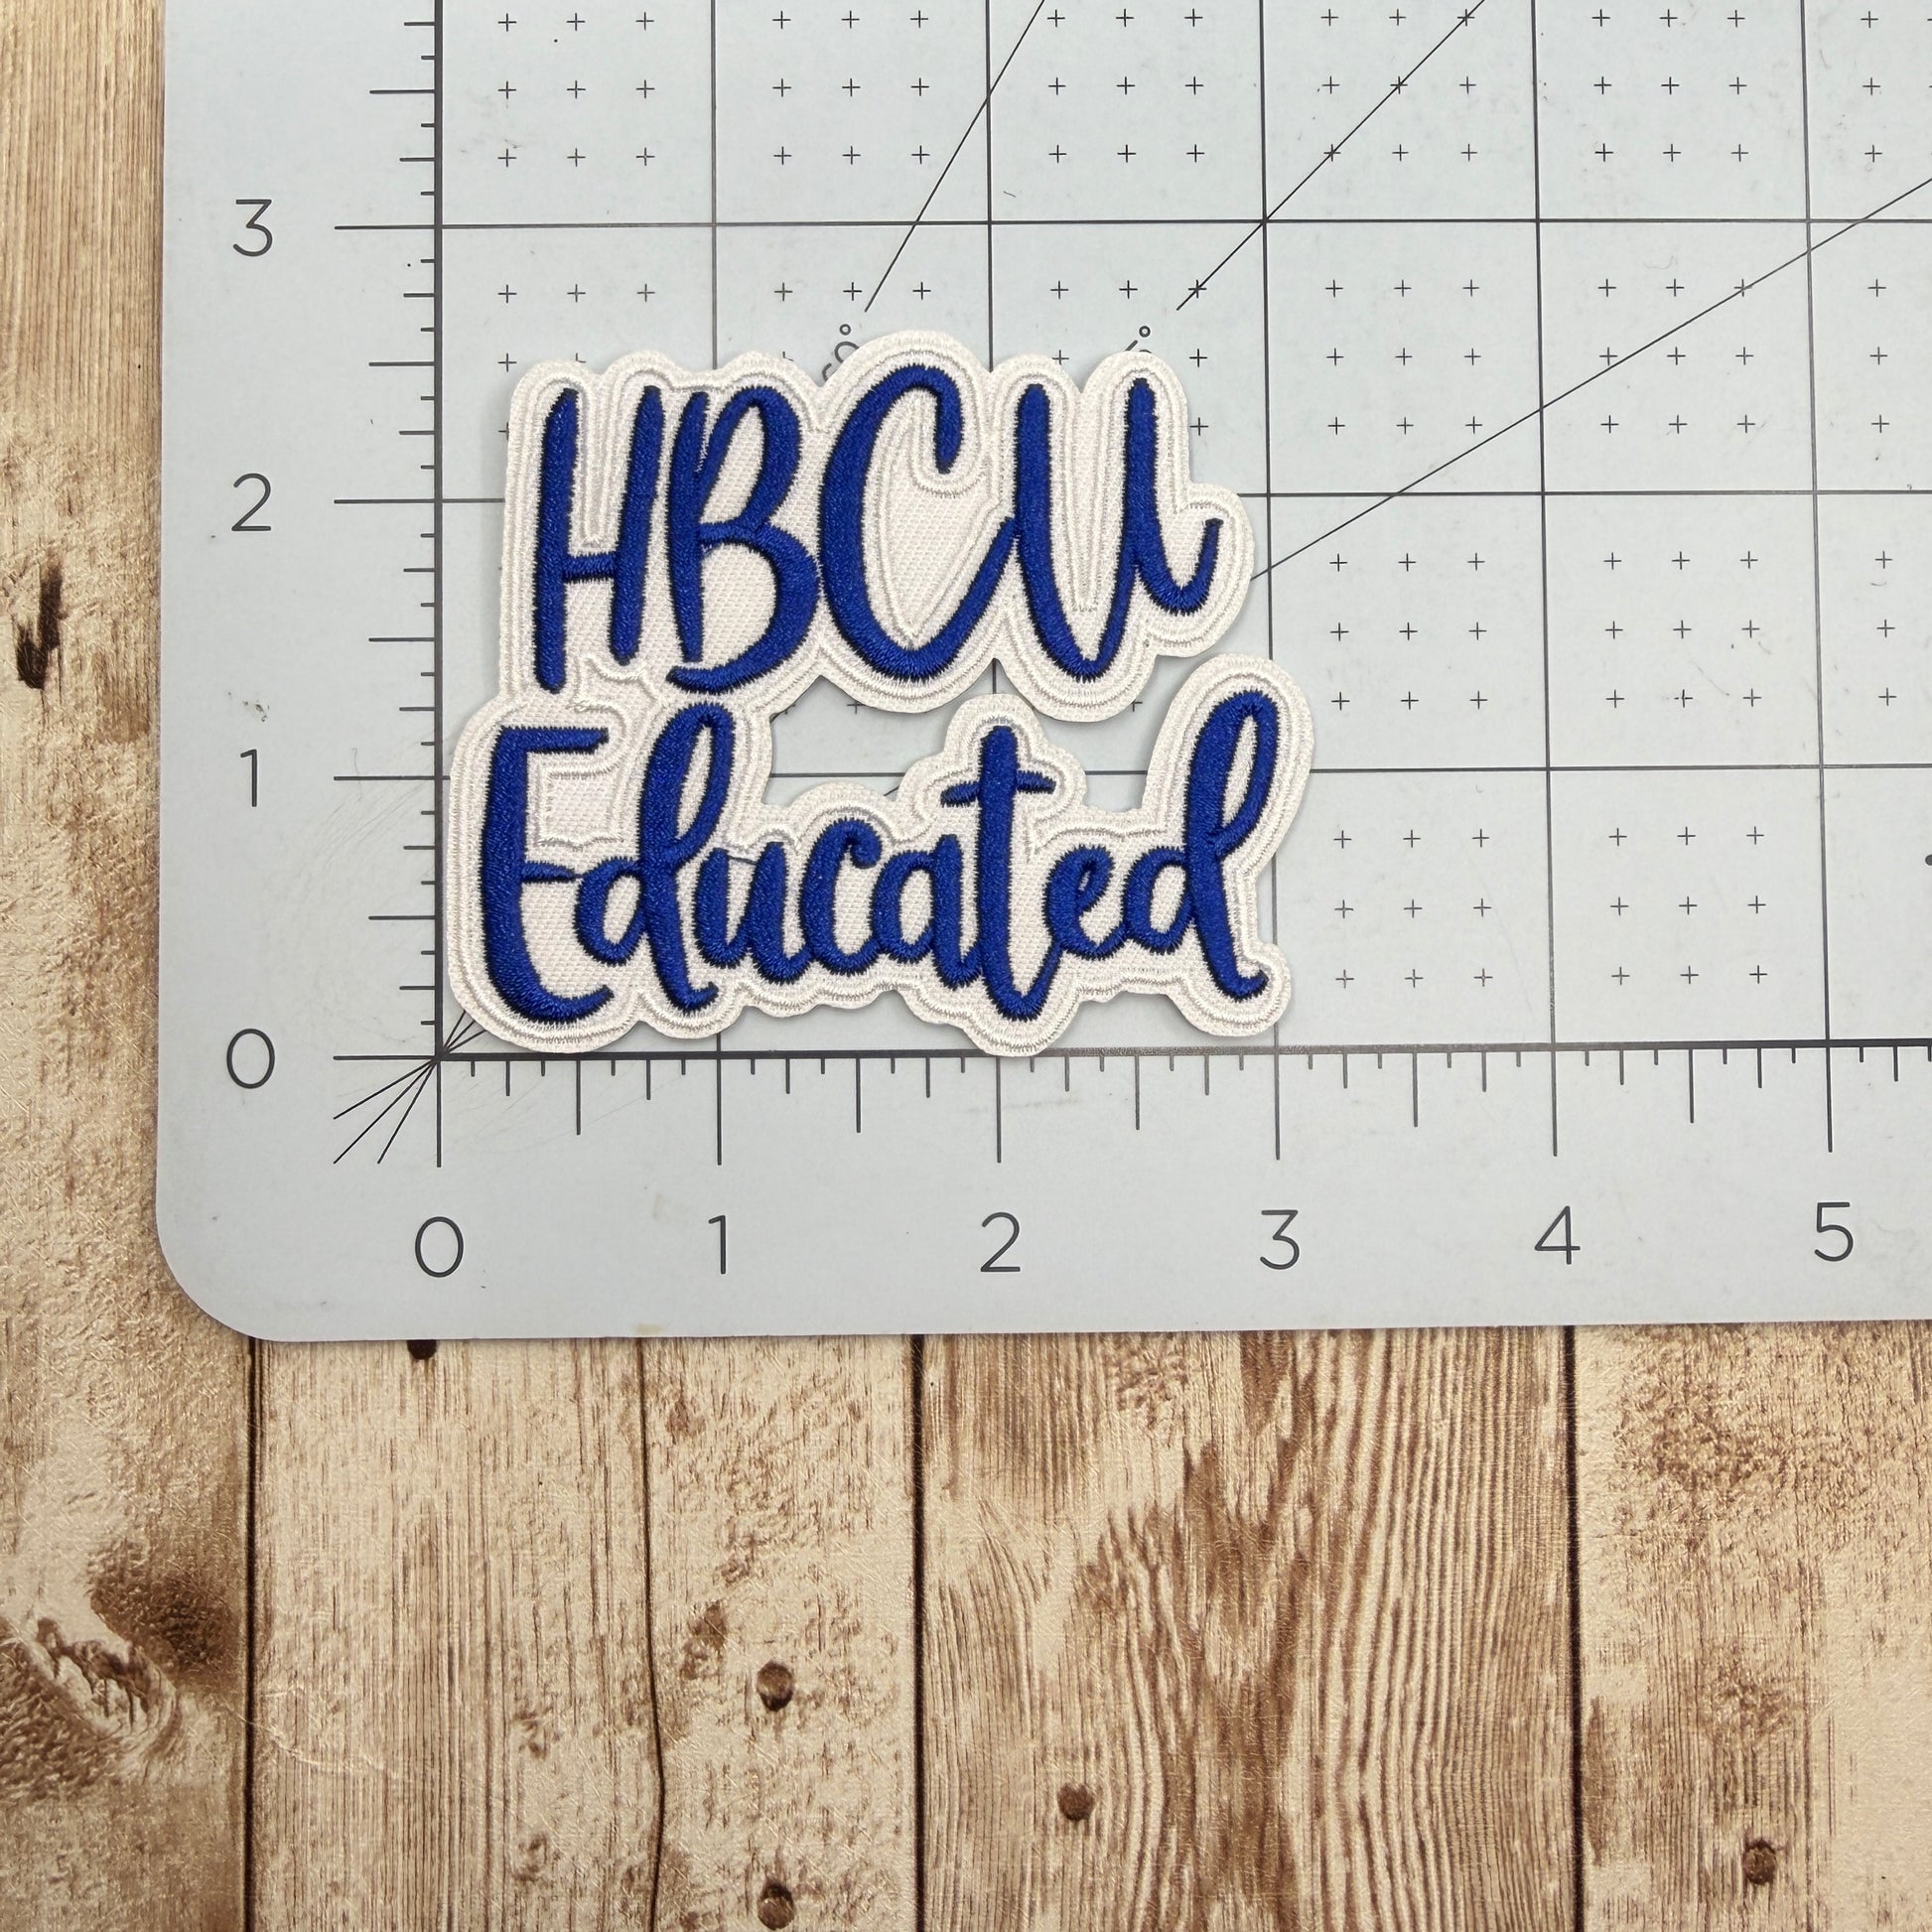 3
HBCU
2
Educated
1
0
0 1 2 3 4 5